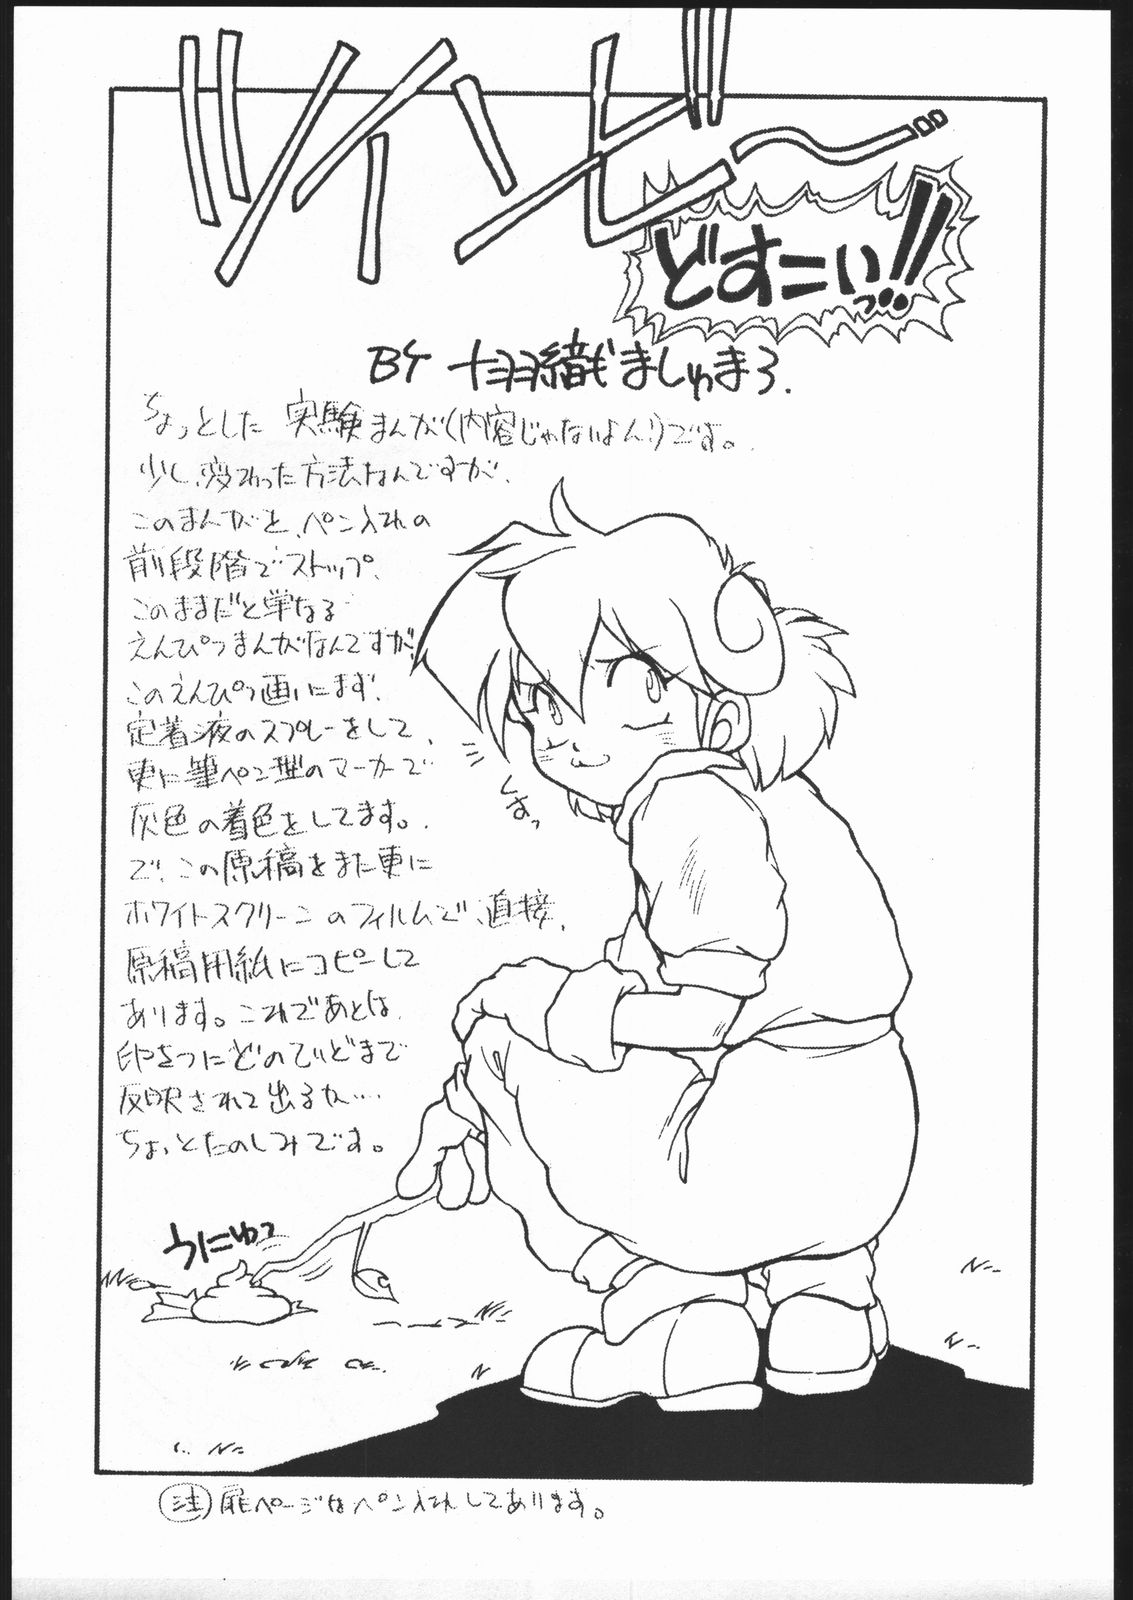 ツイ
ビ〜
どすこいっ!!
BY 十羽織ましゅまろ.
ちょっとした 実験まんが(内容じゃないよん!)です。
少し、変わった方法なんですが、
このまんがと、ペン入れの
前段階でストップ、
このままだと単なる
えんぴつまんがなんですが、
このえんぴつ画にまず、
定着液のスプレーをして、
更に筆ペン型のマーカーで
灰色の着色をしてます。
で、この原稿をまた更に
ホワイトスクリーンのフィルムで、直接、
原稿用紙にコピーして
あります。これであとは、
印をつにどのていどまで
反映されて出るか…
ちょっとたのしみです。
うにゅっ
注 扉ページはペン入れしてあります。